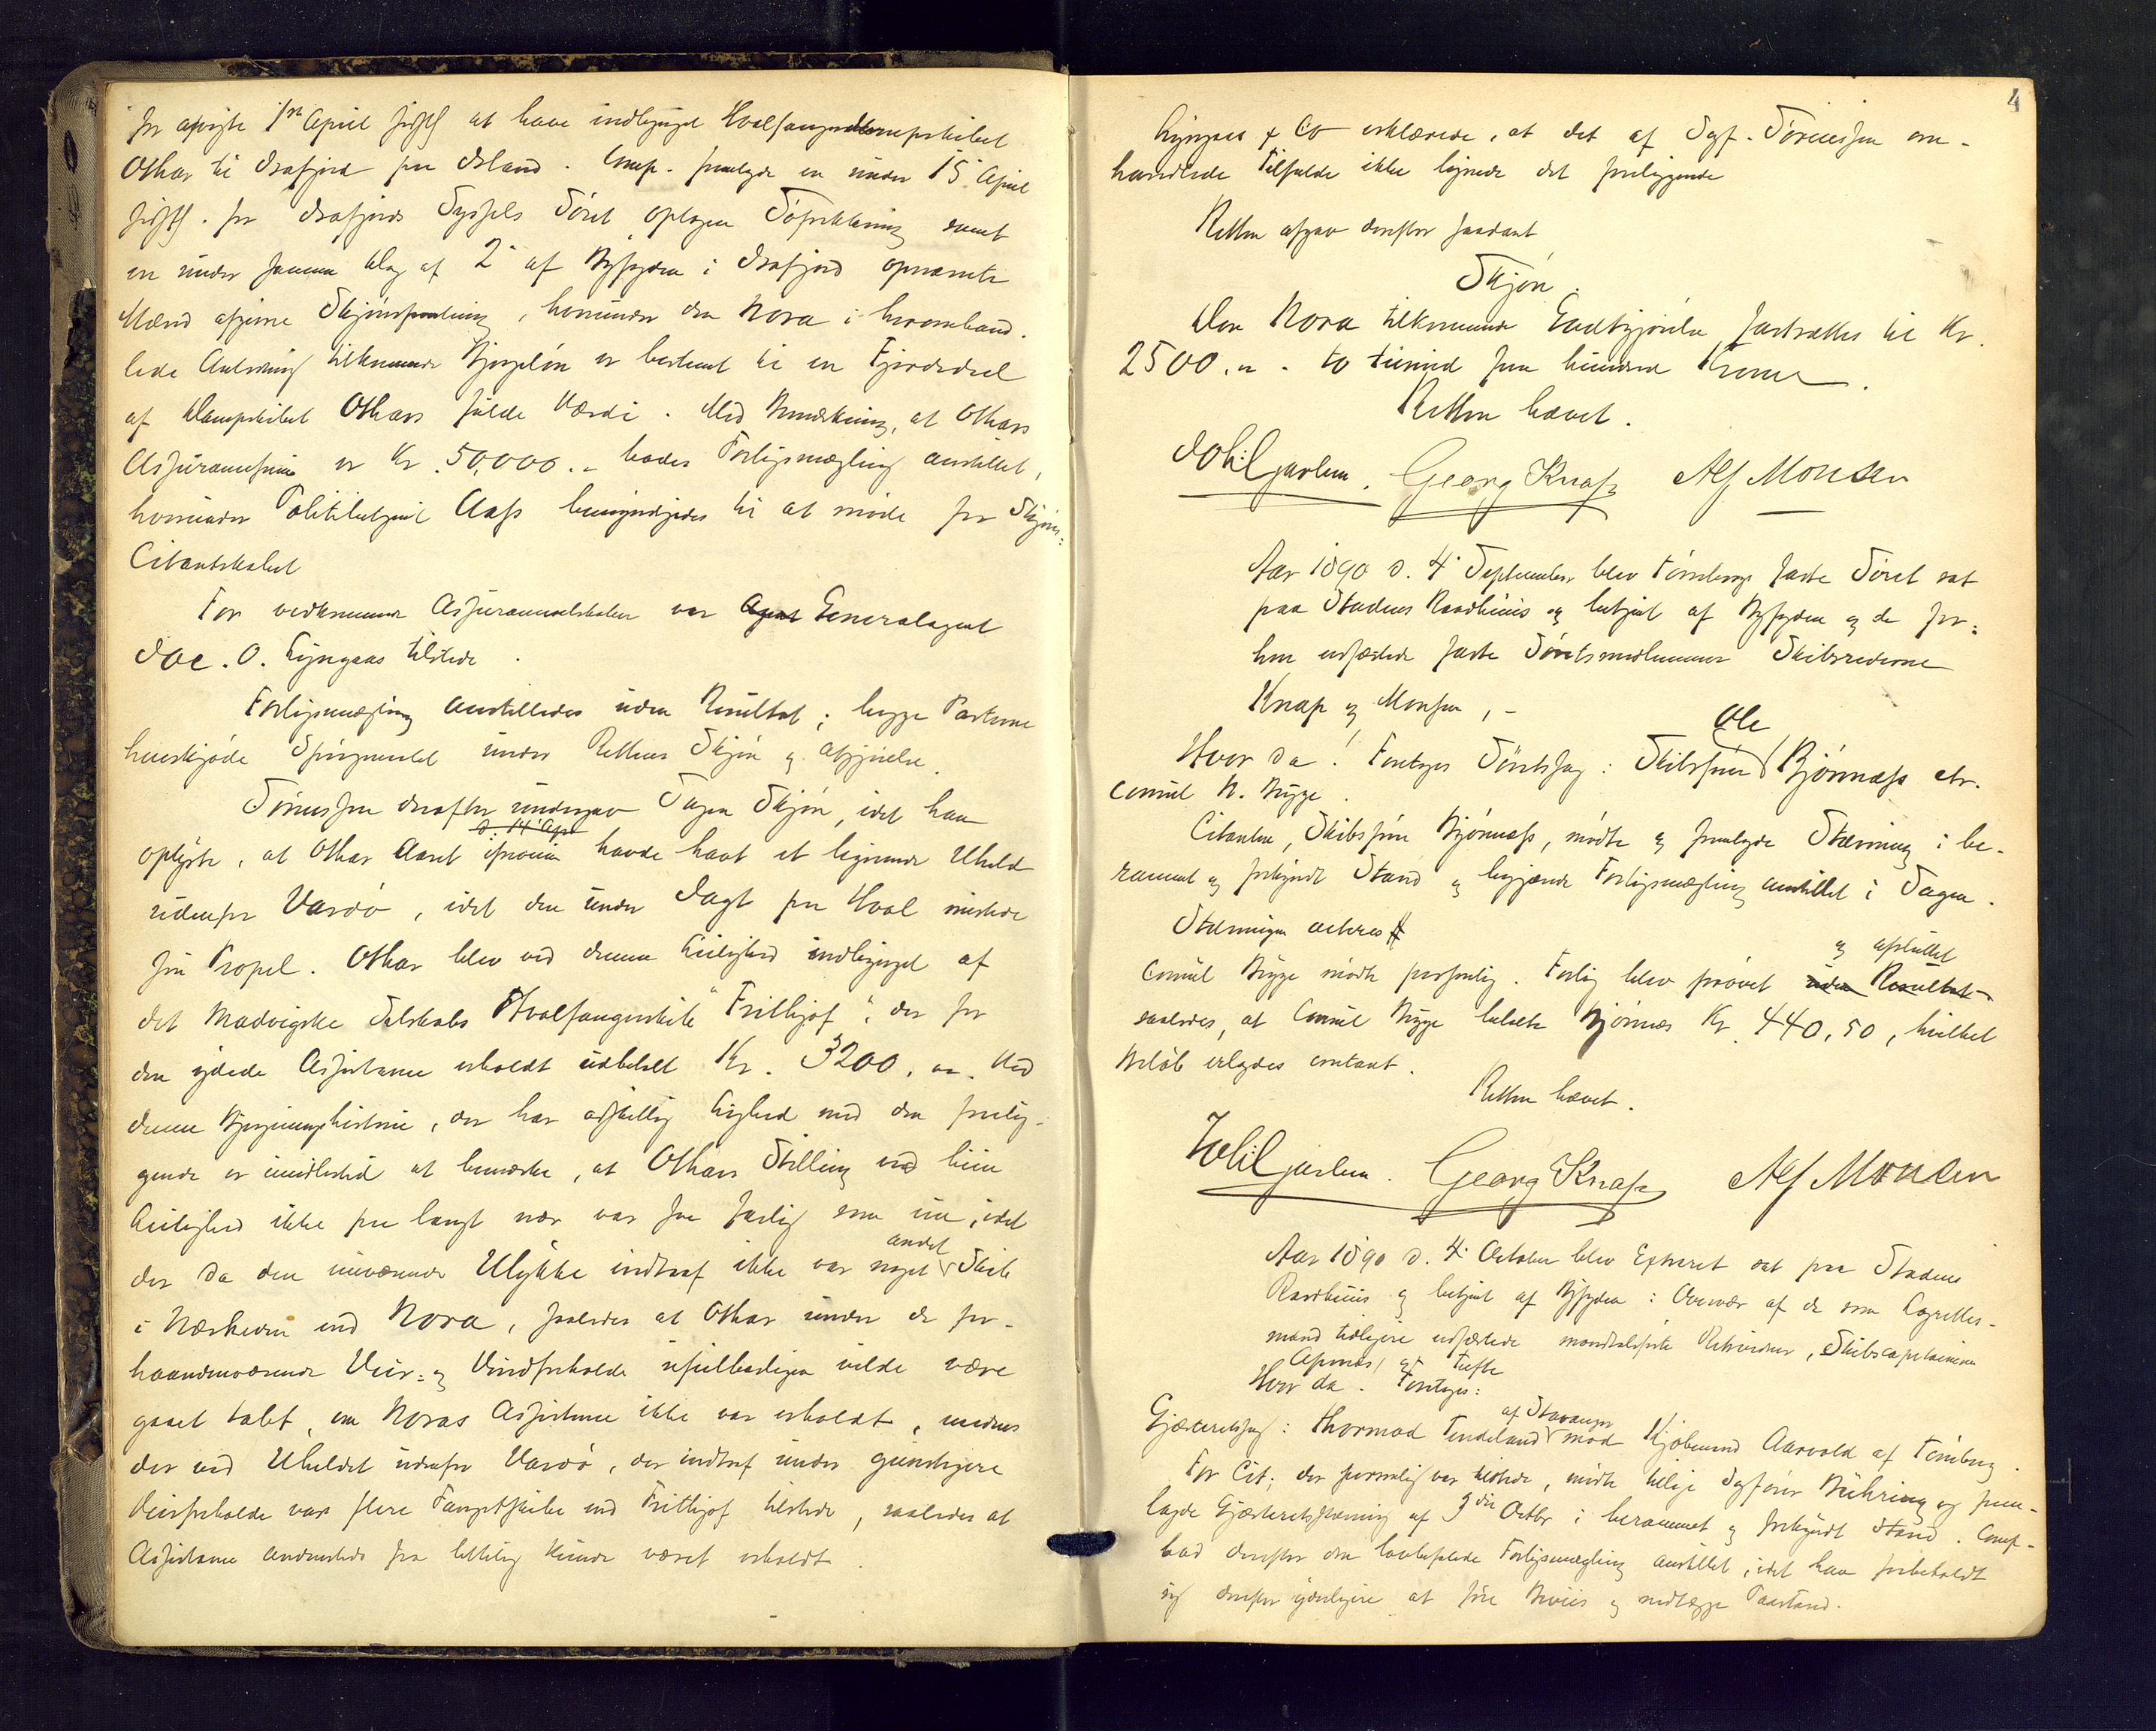 for  1ste April sidstl at have indbugseret Hvalfangerdampskibet
Othar til Isafjord paa Island. Comp. fremlagde en under 15 April
sidstl. for Isafjords Syssels Söret optagen Söforklaring samt
en under samme Dag af 2 af Byfogden i Isafjord opnævnte
Mænd afgivne Skjönsforretning, hvorunder den Nora i hvoromhand-
lede Anledning tilkommende Bjergelön er bestemt til en Fjerdedel
af Dampskibet Othars fulde Værdi. Med Bemærkning, at Othars
Assurancesum er Kr. 50,000.- bades Forligsmægling anstillet,
hvorunder Politibetjent Aass bemyndigedes til at möde for Skjöns-
Citantskabet
For vedkommende Assuranceselskaber var Agent Generalagent
Joc. O. Lyngaas tilstede.
Forligsmægling anstilledes uden Resultat; begge Parterne
henskjöde Spörgsmaalet under Rettens Skjön og Afgjörelse.
Sörenssen derefter undergav Sagen Skjön, idet han
d. 14 Apl
oplyste, at Othar Aaret iforveien havde havt et lignende Uheld
udenfor Vardö, idet den under Jagt paa Hval mistede
sin Propel. Othar blev ved denne Leilighed indbugseret af
det Madvigske Selskabs Hvalfangerskib "Frithjof", der for
den ydede Assistance erholdt udbetalt Kr. 3200, . Ved
denne Bjergningshistorie, der har adskillig Lighed med den forelig-
gende er imidlertid at bemærke, at Othars Stilling ved hiin
Leilighed ikke paa langt nær var saa farlig som nu, idet
andet
der da den nuværende Ulykke indtraf ikke var noget Skib
i Nærheden end Nora, saaledes at Othar under de for-
haandenværende Veir- og Vindforholde ufeilbarligen vilde være
gaaet tabt, om Noras Assistance ikke var erholdt, medens
der ved Uheldet udenfor Vardö, der indtraf under gunstigere
Veirforholde var flere Fangstskibe end Frithjof tilstede, saaledes at
Assistance andensteds fra lettelig kunde været erholdt.
4
Lyngaas & Co erklærede, at det af Sagf. Sörenssen om-
handlede Tilfælde ikke lignede det foreliggende
Retten afgav derefter saadant
Skjön:
Den Nora tilkommende Godtgjörelse fastsættes til Kr.
2500. - to tusind fem hundred Kroner.
Retten hævet.
Georg Knap Alf Monsen
Aar 1890 d. 4 September blev Tönsbergs faste Söret sat
paa Stadens Raadhuus og betjent af Byfogden og de for-
hen edfæstede faste Söretsmedlemmer Skibsrederne
Knap og Monsen, -
Ole
Hvor da: Foretages Söretssag: Skibsförer Björnæss ctr.
Consul N. Bugge.
Citanten, Skibsförer Björnæss, mödte og fremlagde Stævning i be-
rammet og forkyndt Stand og begjærede Forligsmægling anstillet i Sagen.
Stævningen acteres #
og afsluttet
Consul Bugge mödte personlig. Forlig blev prövet uden Resultat
saaledes, at Consul Bugge betalte Björnæs Kr. 440,50, hvilket
Belöb erlagdes contant.
Retten hævet.
Georg Knap Alf Monsen
Aar 1890 d. 4 October blev Extraret sat paa Stadens
Raadhuus og betjent af Byfogden i Overvær af de som Lagrettes-
mænd tidligere edfæstede mandtalsförte Retsvidner, Skibscapitainerne
og Tufte
Hvor da. Foretages:
af Stavanger
Gjæsteretssag: Thormod Tendeland mod Kjöbmand Aarvold af Tönsberg.
For Cit; der personlig var tilstede, mödte tillige Sagförer Bühring og frem-
lagde Gjæsteretsstævning af 3die Octbr i berammet og forkyndt Stand. Comp.
bad derefter den lovbefalede Forligsmægling anstillet, idet han forbeholdt
sig derefter yderligere at före Beviis og nedlægge Paastand.